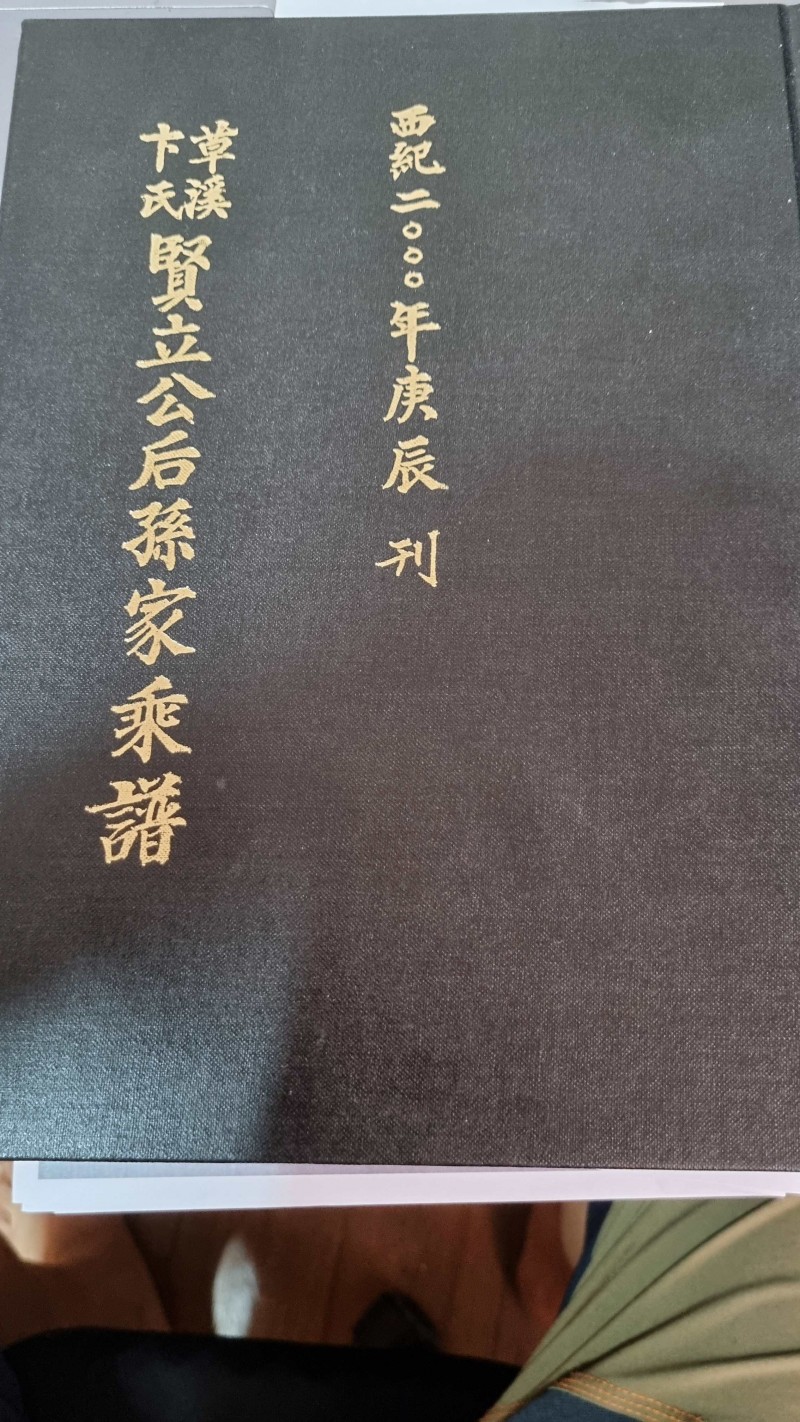 西紀二〇〇〇年庚辰 刊
草溪
卞氏
賢立公后孫家乘譜